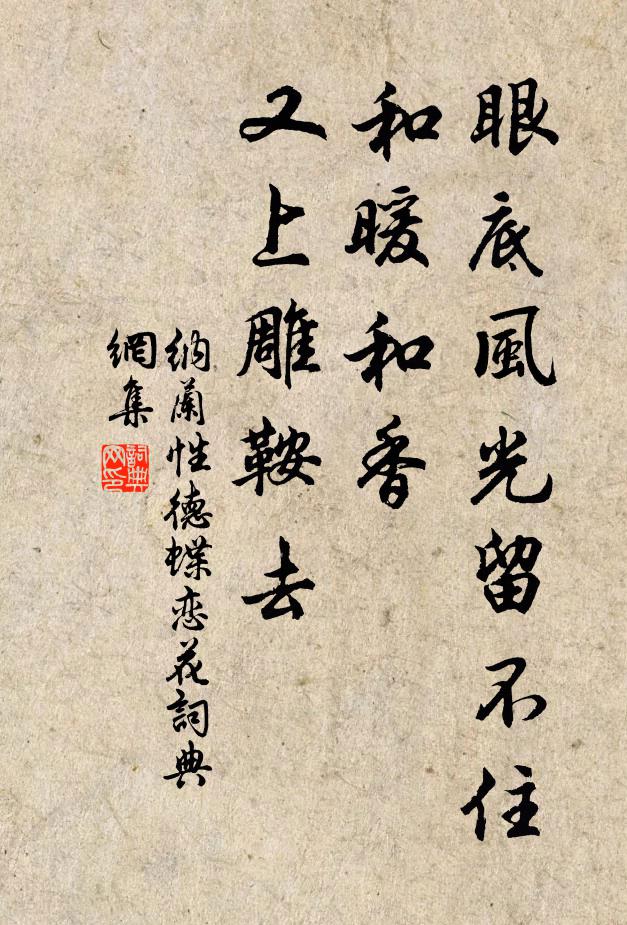 眼底風光留不住
和暖和香
又上雕鞍去
納蘭性德蝶恋花詞典
網集
詞典
网印